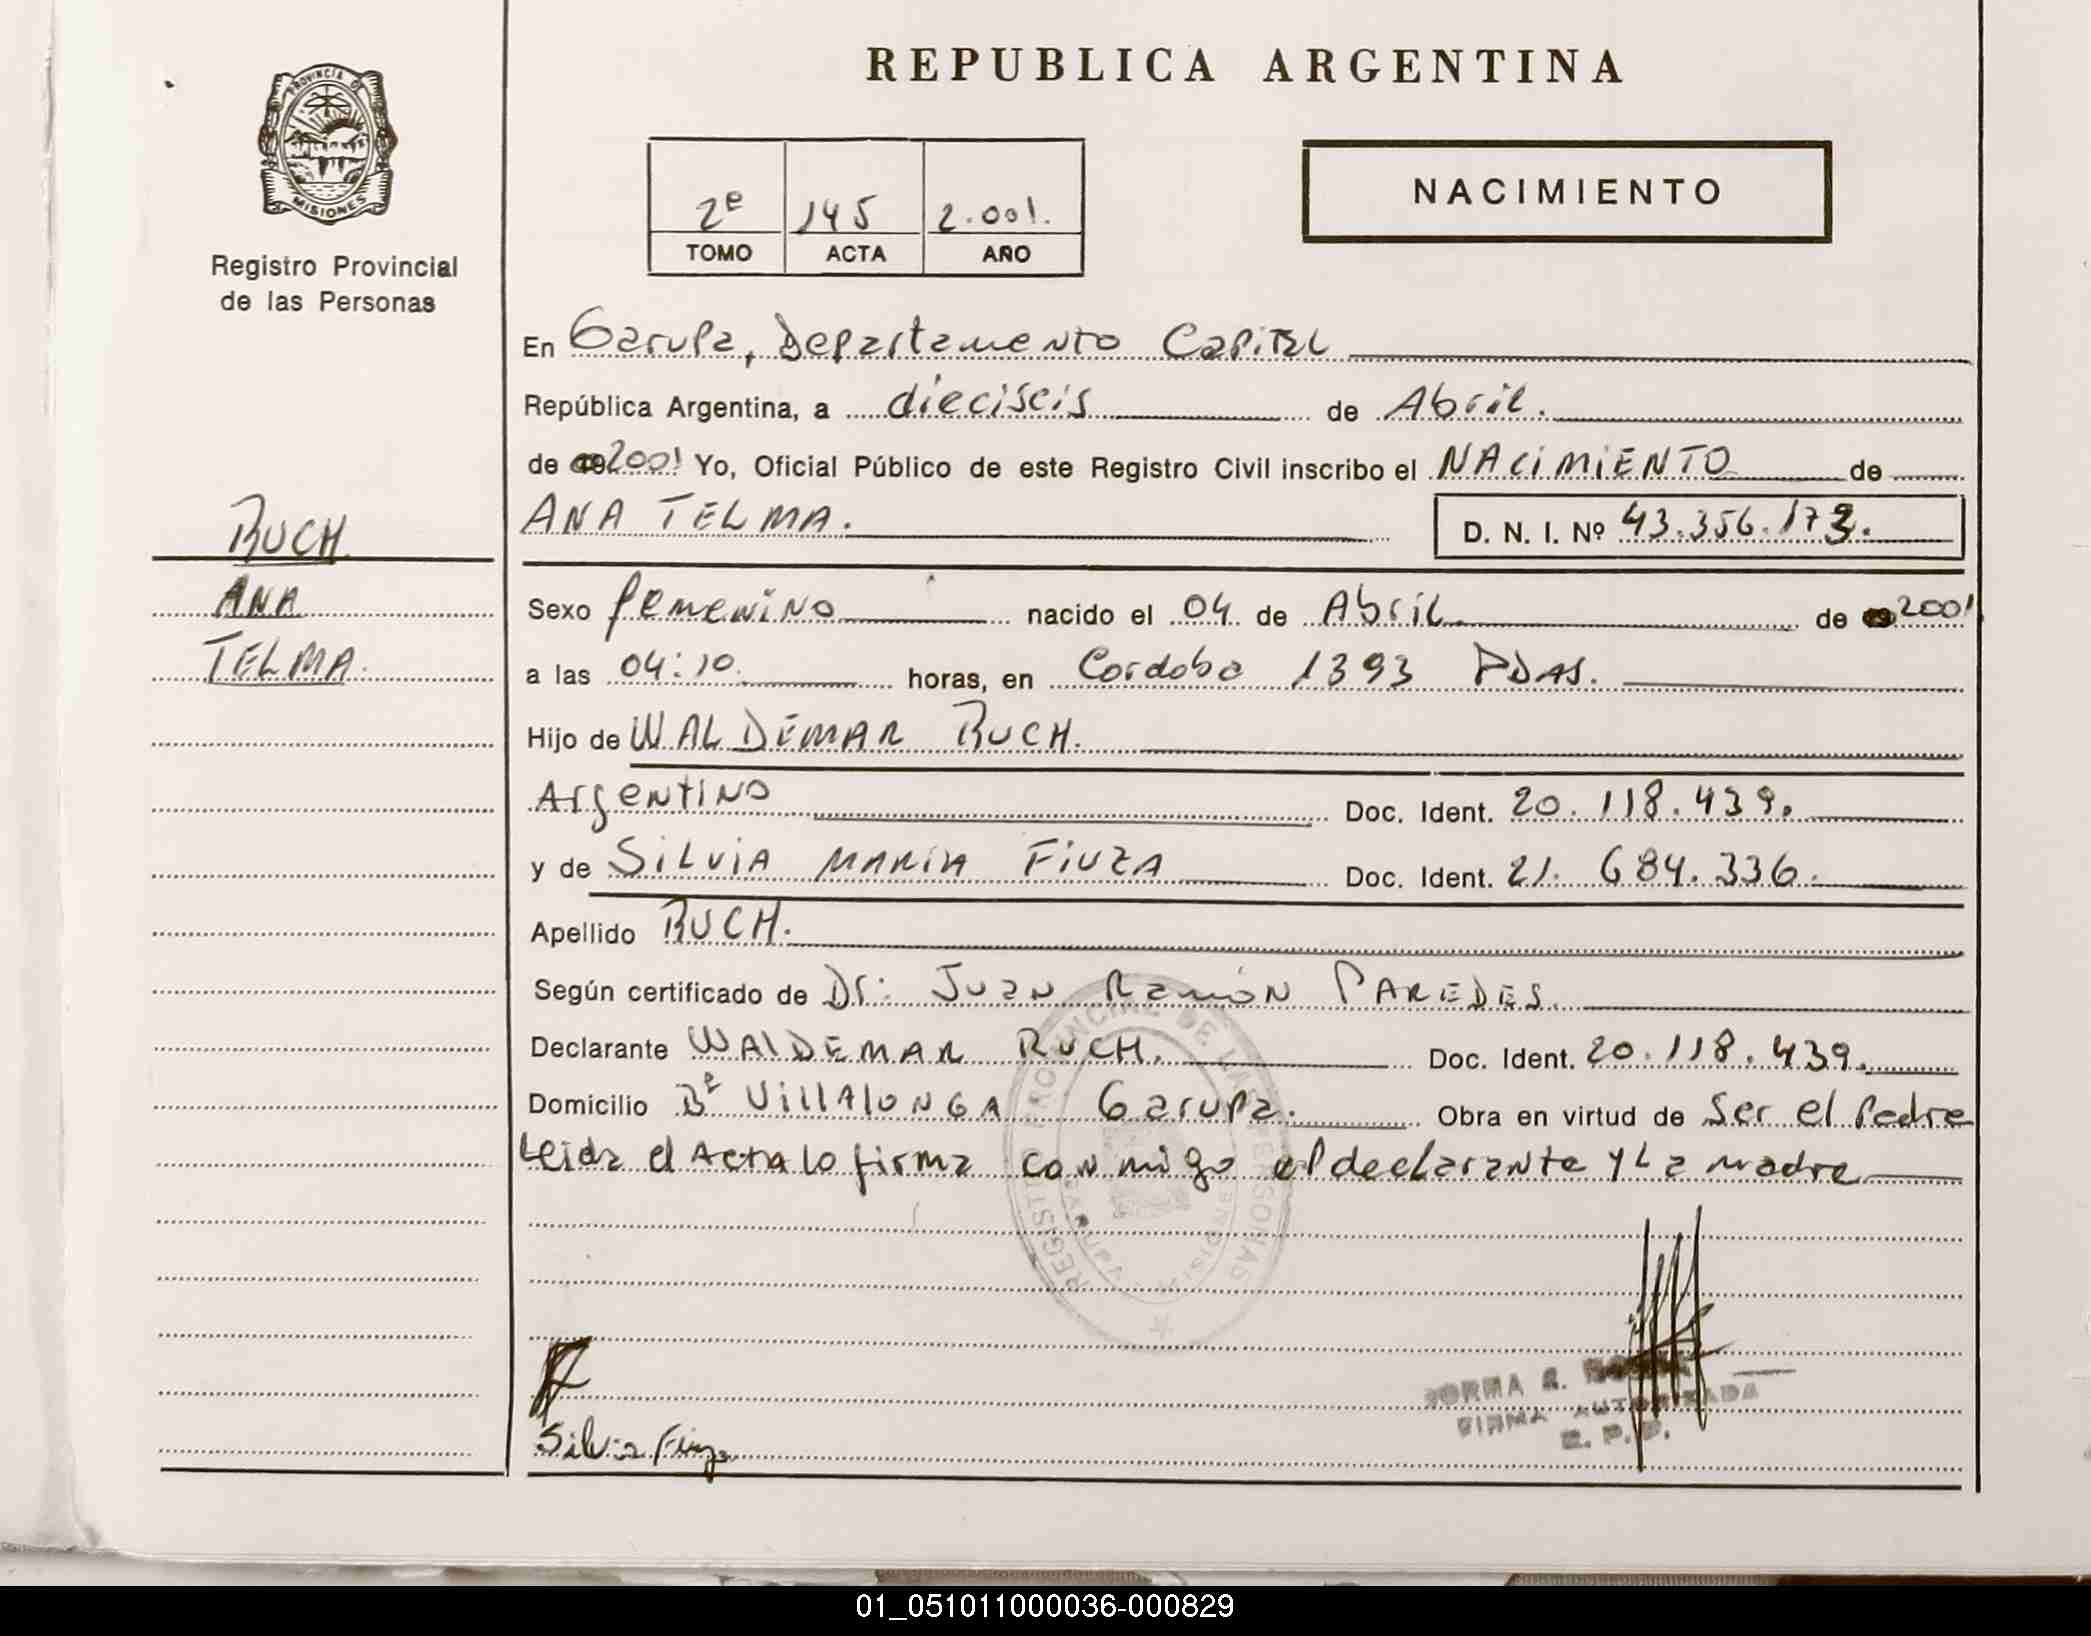 PROVINCIA DE
MISIONES
Registro Provincial
de las Personas
RUCH
ANA
TELMA.
REPUBLICA ARGENTINA
2º 145 2.001.
TOMO ACTA AÑO
NACIMIENTO
En Garupa, Departamento Capital
República Argentina, a dieciseis de Abril.
de 2001 Yo, Oficial Público de este Registro Civil inscribo el NACIMIENTO de
ANA TELMA.
D. N. I. Nº 43.356.173.
Sexo femenino nacido el 04 de Abril de 2001
a las 04:10 horas, en Cordoba 1393 PDAS.
Hijo de WALDEMAR RUCH.
Argentino Doc. Ident. 20.118.439.
y de SILVIA MARIA FIUZA Doc. Ident. 21.684.336.
Apellido RUCH.
Según certificado de Dr: Juan Ramón PAREDES.
Declarante WALDEMAR RUCH. Doc. Ident. 20.118.439.
Domicilio Bº VILLALONGA Garupa. Obra en virtud de Ser el Padre
Leida el Acta lo firma conmigo el declarante y La madre
REGISTRO PROVINCIAL DE LAS PERSONAS
Silvia Fiuza
FIRMA AUTORIZADA
01_051011000036-000829